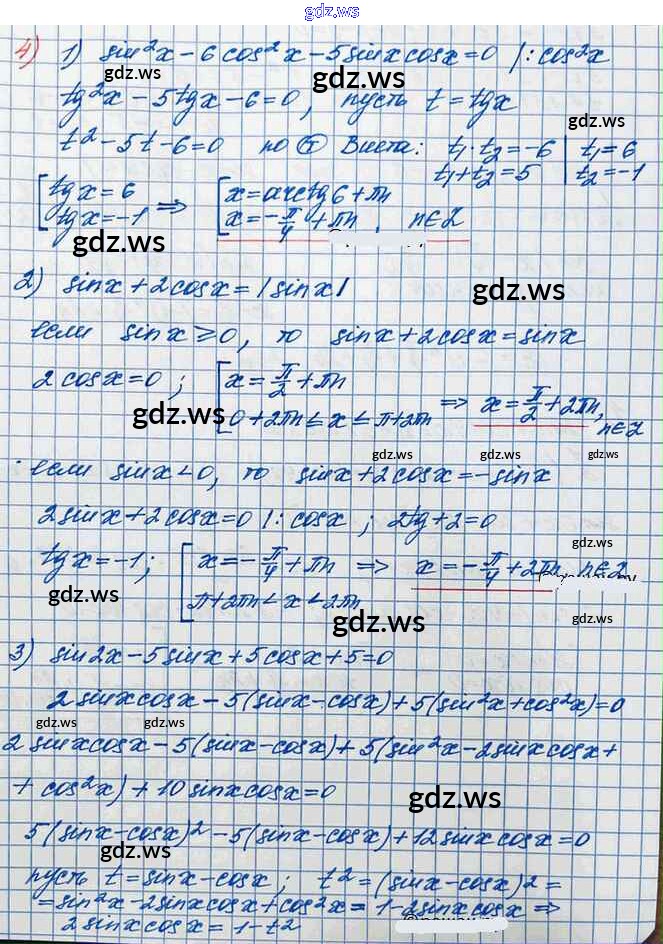 gdz.ws
4) 1) sin²x - 6 cos²x - 5 sinx cosx = 0 /: cos²x
gdz.ws gdz.ws
tg²x - 5tgx - 6 = 0, пусть t = tgx
gdz.ws
t² - 5t - 6 = 0 по Т Виета: t₁·t₂ = -6 | t₁ = 6
t₁ + t₂ = 5 | t₂ = -1
[tgx = 6 => [x = arctg6 + πn
[tgx = -1 [x = -π/4 + πn, n∈Z
gdz.ws
2) sinx + 2cosx = |sinx|
gdz.ws
если sinx ≥ 0, то sinx + 2cosx = sinx
2cosx = 0; [x = π/2 + πn
[0 + 2πn ≤ x ≤ π + 2πn => x = π/2 + 2πn, n∈Z
gdz.ws
gdz.ws gdz.ws gdz.ws
если sinx < 0, то sinx + 2cosx = -sinx
2sinx + 2cosx = 0 /: cosx; 2tg + 2 = 0
gdz.ws
tgx = -1; [x = -π/4 + πn => x = -π/4 + 2πn, n∈Z
[π + 2πn < x < 2πn
gdz.ws
gdz.ws gdz.ws
3) sin2x - 5sinx + 5cosx + 5 = 0
2sinxcosx - 5(sinx - cosx) + 5(sin²x + cos²x) = 0
gdz.ws gdz.ws gdz.ws
2sinxcosx - 5(sinx - cosx) + 5(sin²x - 2sinxcosx +
+ cos²x) + 10sinxcosx = 0
gdz.ws
5(sinx - cosx)² - 5(sinx - cosx) + 12sinxcosx = 0
gdz.ws
пусть t = sinx - cosx; t² = (sinx - cosx)² =
= sin²x - 2sinxcosx + cos²x = 1 - 2sinxcosx =>
2sinxcosx = 1 - t²